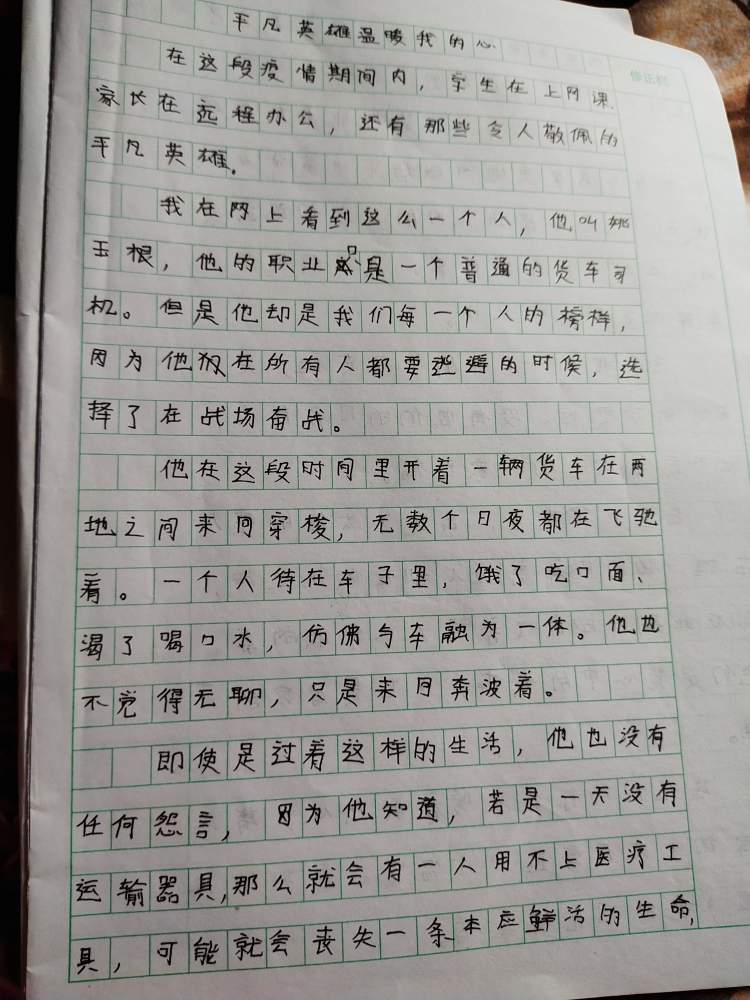 平凡英雄温暖我的心
在这段疫情期间内，学生在上网课，
家长在远程办公，还有那些令人敬佩的
平凡英雄。
我在网上看到这么一个人，他叫姚
玉根，他的职业只是一个普通的货车司
机。但是他却是我们每一个人的榜样，
因为他在所有人都要逃避的时候，选
择了在战场奋战。
他在这段时间里开着一辆货车在两
地之间来回穿梭，无数个日夜都在飞驰
着。一个人待在车子里，饿了吃口面、
渴了喝口水，仿佛与车融为一体。他也
不觉得无聊，只是来回奔波着。
即使是过着这样的生活，他也没有
任何怨言，因为他知道，若是一天没有
运输器具，那么就会有一人用不上医疗工
具，可能就会丧失一条本应鲜活的生命，
修正栏